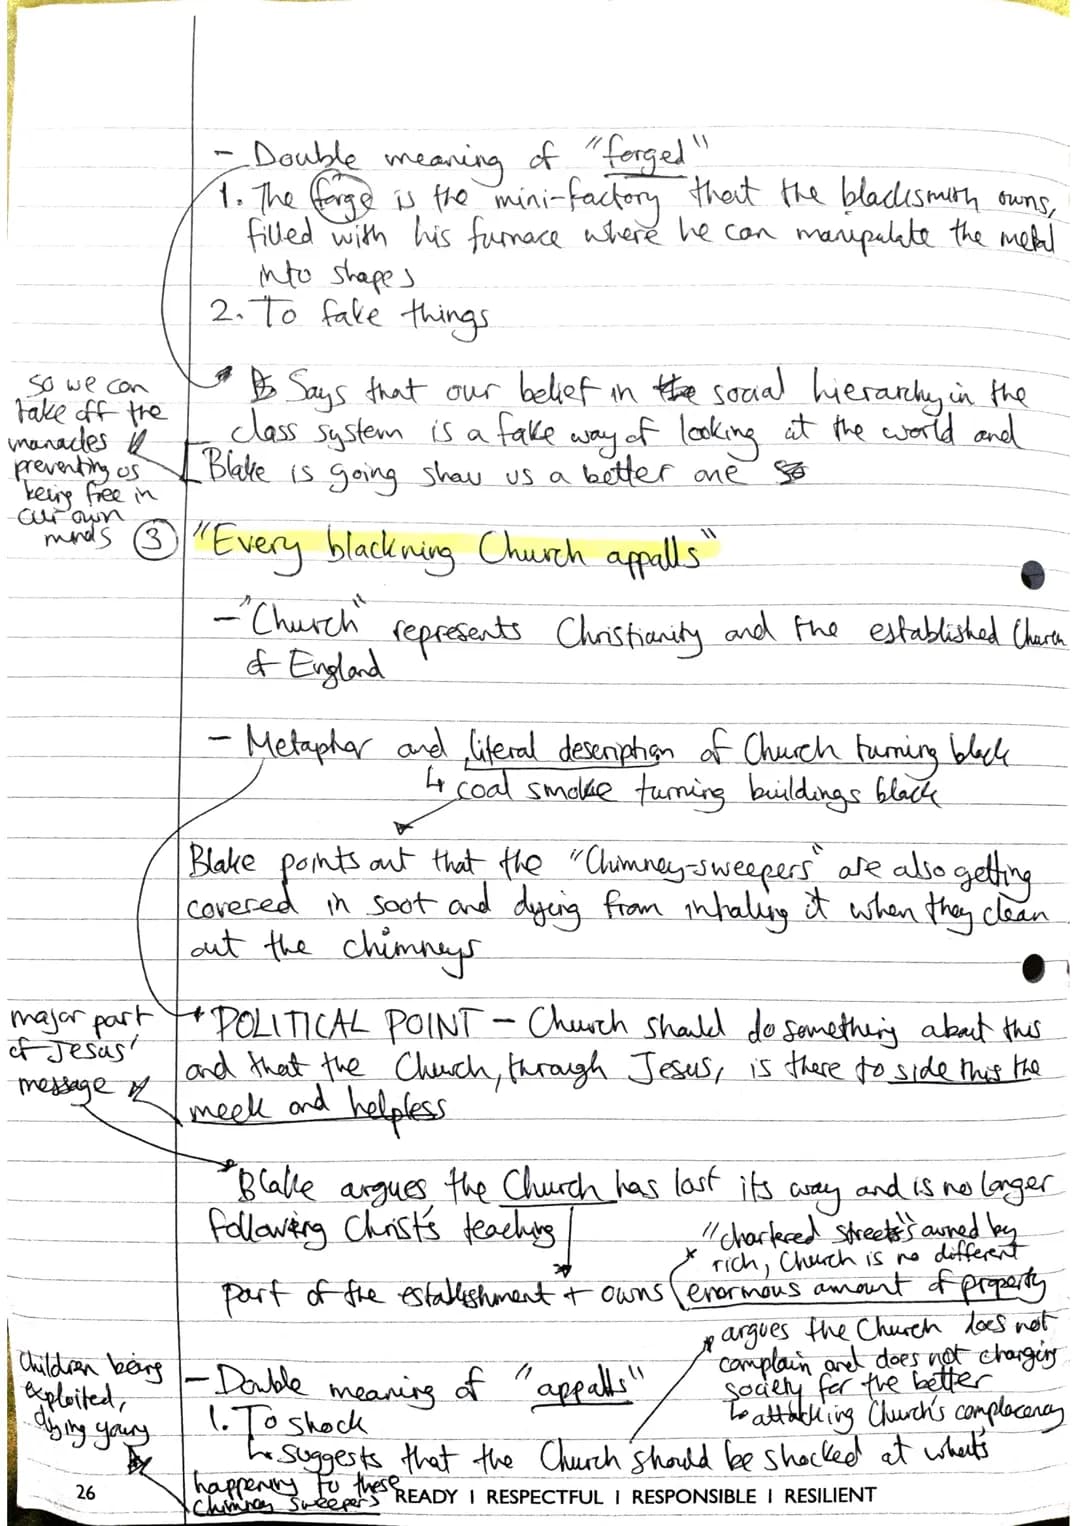 - Double meaning of "forged"
1. The forge is the mini-factory that the blacksmith owns,
filled with his furnace where he can manipulate the metal
into shapes
2. To fake things
Says that our belief in the social hierarchy in the
class system is a fake way of looking at the world and
Blake is going show us a better one
so we can
take off the
manacles
preventing us
being free in
our own
minds
③ "Every blackning Church appalls"
- "Church" represents Christianity and the established Church
of England
- Metaphor and literal description of Church turning black
↳ coal smoke turning buildings black
Blake points out that the "Chimney-sweepers" are also getting
covered in soot and dying from inhaling it when they clean
out the chimneys
POLITICAL POINT - Church should do something about this
and that the Church, through Jesus, is there to side this the
meek and helpless
major part
of Jesus'
message
Blake argues the Church has lost its way and is no longer
following Christ's teaching
part of the establishment + owns enormous amount of property
"chartered streets" owned by
rich, Church is no different
- Double meaning of "appalls"
1. To shock
↳ suggests that the Church should be shocked at what's
happening to these
chimney sweepers
argues the Church does not
complain and does not changing
society for the better
↳ attacking Church's complacency
Children being
exploited,
dying young
26
READY | RESPECTFUL | RESPONSIBLE | RESILIENT